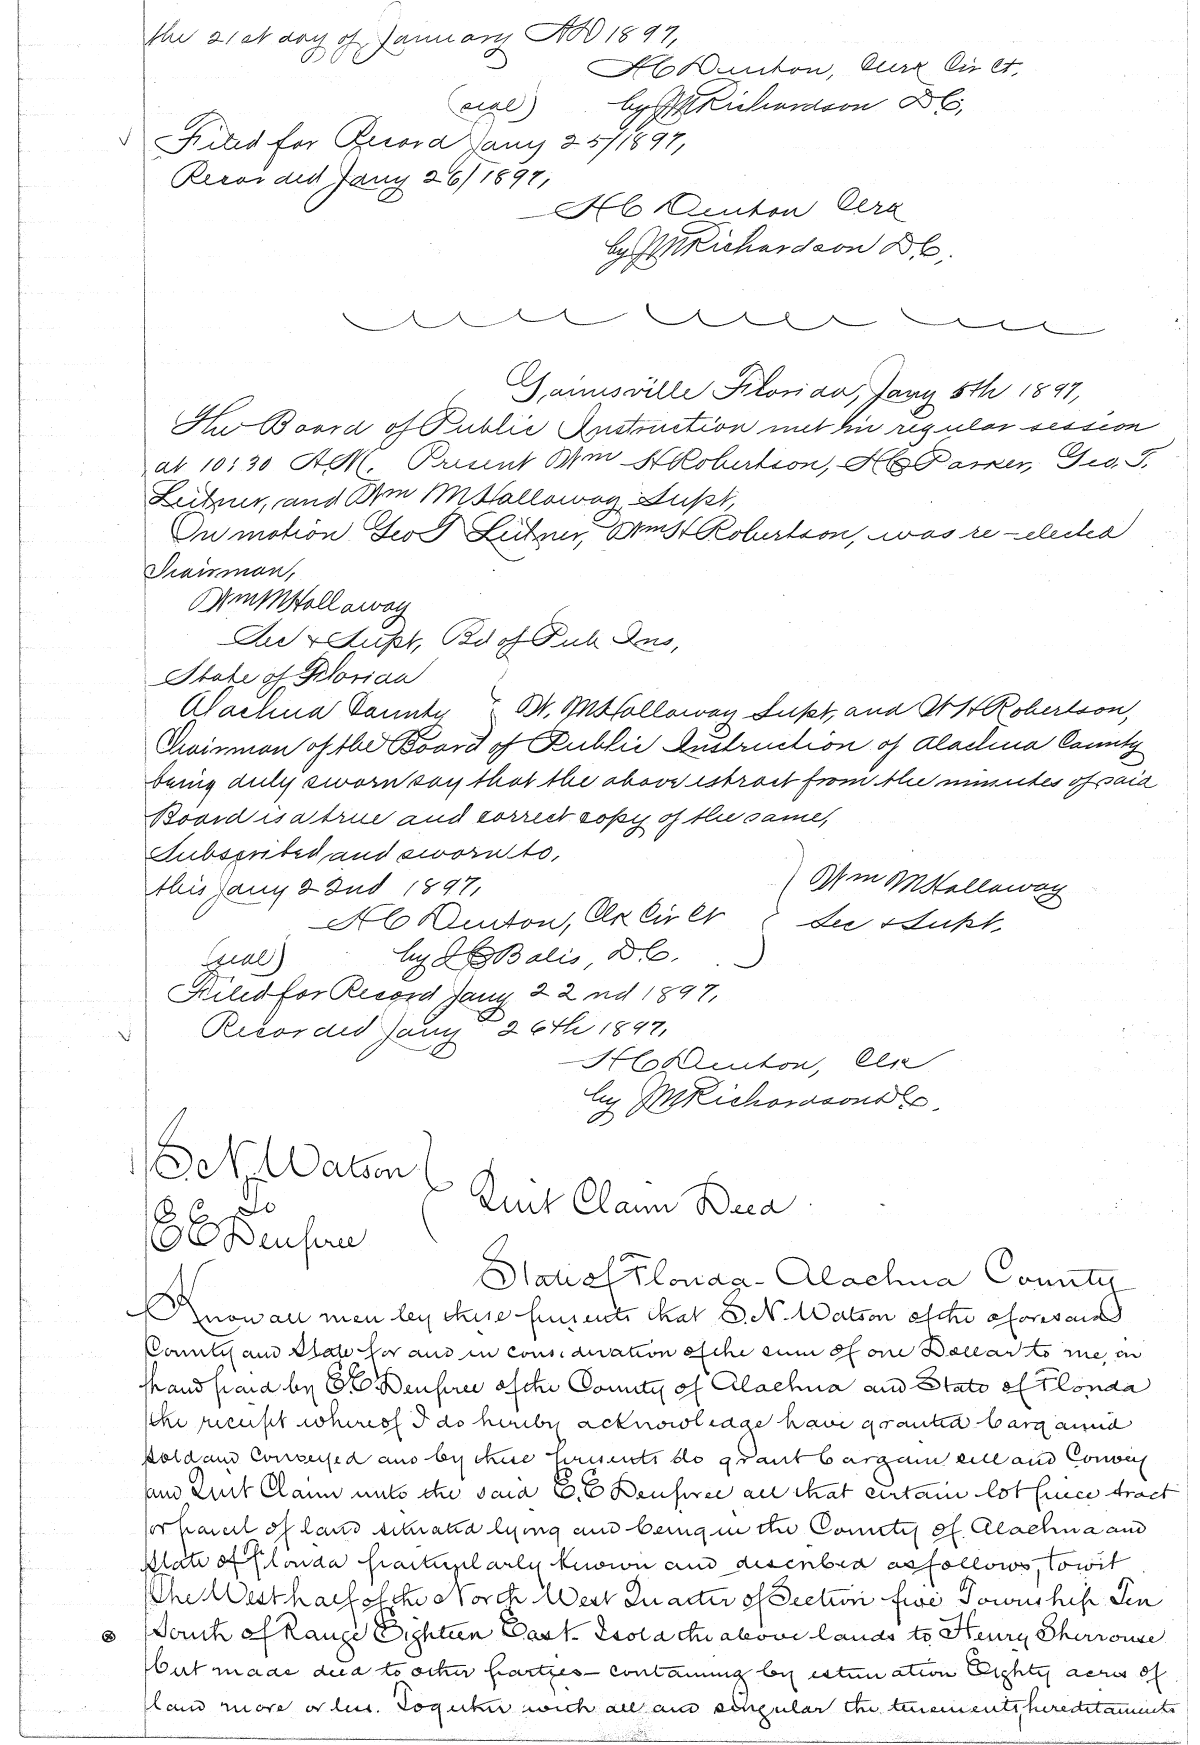 the 21st day of January AD 1897,
H C Denton, Clerk Cir Ct.
(seal) by J M Richardson D C,
Filed for Record Jany 25/1897,
Recorded Jany 26/1897,
H C Denton Clerk
by J M Richardson D.C.
Gainesville Florida, Jany 5th 1897,
The Board of Public Instruction met in regular session
at 10:30 A.M. Present Wm H Robertson, H C Parker, Geo. T.
Leitner, and Wm M Holloway Supt,
On motion Geo T Leitner, Wm H Robertson, was re-elected
Chairman,
Wm M Holloway
Sec & Supt, Bd of Pub Ins,
State of Florida
Alachua County } W. M Holloway Supt, and W H Robertson,
Chairman of the Board of Public Instruction of Alachua County
being duly sworn say that the above extract from the minutes of said
Board is a true and correct copy of the same,
Subscribed and sworn to,
this Jany 22nd 1897, } Wm M Holloway
H C Denton, Clk Cir Ct } Sec & Supt.
(seal) by Balis, D.C.
Filed for Record Jany 22nd 1897,
Recorded Jany 26th 1897,
H C Denton, Clk
by J M Richardson D C.
S. N. Watson
To } Quit Claim Deed
E E Denfree
State of Florida - Alachua County
Know all men by these presents that S. N. Watson of the aforesaid
County and State for and in consideration of the sum of one Dollar to me, in
hand paid by E E Denfree of the County of Alachua and State of Florida
the receipt whereof I do hereby acknowledge have granted bargained
sold and conveyed and by these presents do grant bargain sell and Convey
and Quit Claim unto the said E. E Denfree all that certain lot piece tract
or parcel of land situated lying and being in the County of Alachua and
State of Florida particularly known and described as follows, towit
The West half of the North West Quarter of Section five Township Ten
South of Range Eighteen East. I sold the above lands to Henry Sherrouse
but made deed to other parties - containing by estimation Eighty acres of
land more or less. Together with all and singular the tenements, hereditaments